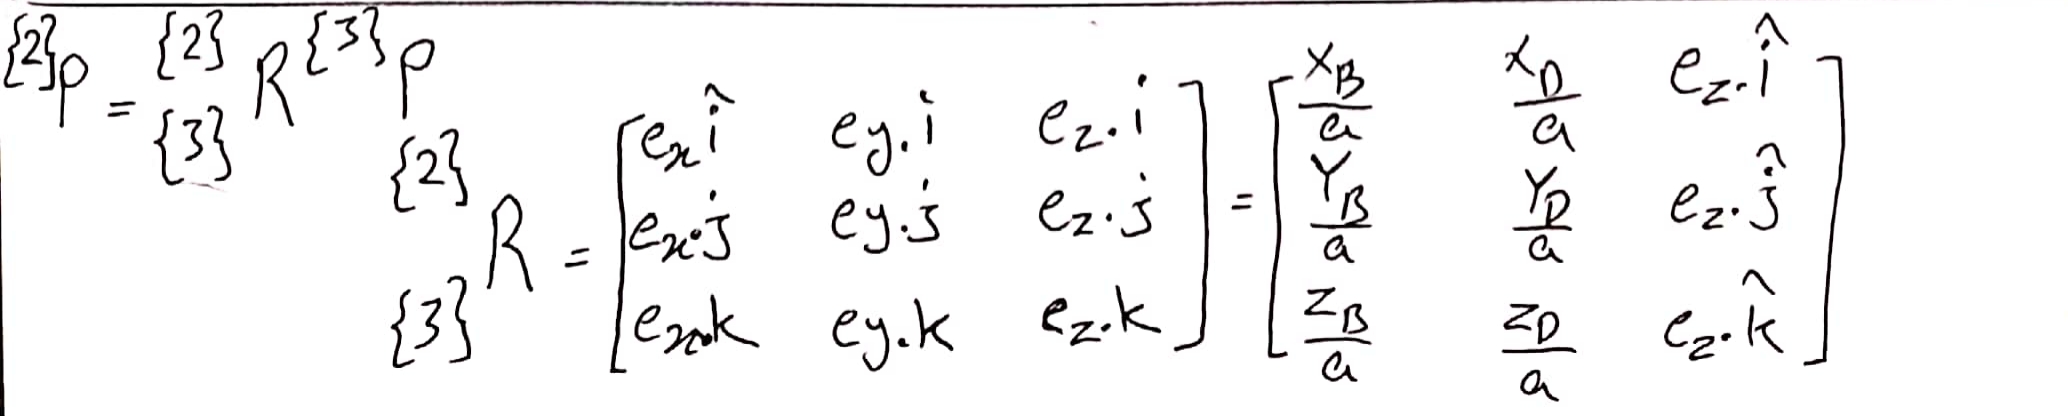 {2}p = {2}{3}R {3}p
{2}{3}R = [e_x î e_y.i e_z.i ; e_x.j e_y.j e_z.j ; e_x.k e_y.k e_z.k] = [x_B/a x_D/a e_z.î ; Y_B/a Y_D/a e_z.ĵ ; z_B/a z_D/a e_z.k̂]